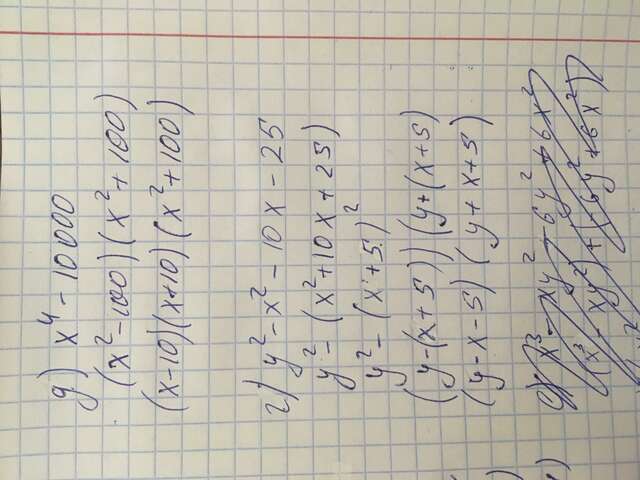 д) x⁴ - 10000
(x² - 100)(x² + 100)
(x - 10)(x + 10)(x² + 100)
г) y² - x² - 10x - 25
y² - (x² + 10x + 25)
y² - (x + 5)²
(y - (x + 5))(y + (x + 5)
(y - x - 5)(y + x + 5)